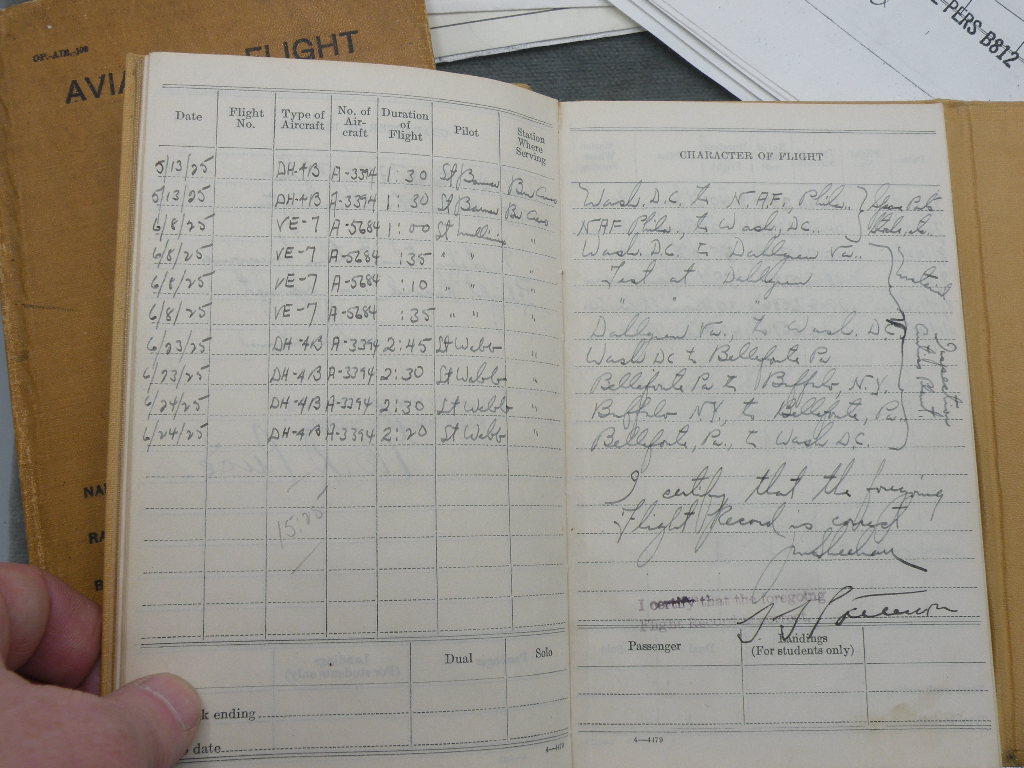 OP.-ATR.-100
AVIA FLIGHT
PERS B812
Date Flight No. Type of Aircraft No. of Air-craft Duration of Flight Pilot Station Where Serving
CHARACTER OF FLIGHT
5/13/25 DH-4B A-3394 1:30 Lt Wash. D.C. to N.A.F., Phila.
5/13/25 DH-4B A-3394 1:30 Lt N.A.F. Phila., to Wash., D.C.
6/8/25 VE-7 A-5684 1:00 Lt " Wash. D.C. to Dahlgren Va.
6/8/25 VE-7 A-5684 :35 " " " Test at Dahlgren
6/8/25 VE-7 A-5684 :10 " " " " " "
6/8/25 VE-7 A-5684 :35 " " " Dahlgren Va., to Wash. D.C.
6/23/25 DH-4B A-3394 2:45 Lt Webb " Wash DC to Bellefonte Pa
6/23/25 DH-4B A-3394 2:30 Lt Webb " Bellefonte Pa to Buffalo N.Y.
6/24/25 DH-4B A-3394 2:30 Lt Webb " Buffalo N.Y., to Bellefonte, Pa.
6/24/25 DH-4B A-3394 2:20 Lt Webb " Bellefonte, Pa., to Wash D.C.
Inspection
Curtiss Plant
I certify that the foregoing
Flight Record is correct
I certify that the foregoing
Flight
Dual Solo
Passenger Landings (For students only)
k ending
date
4—4179
4—4179
NA
RA
B